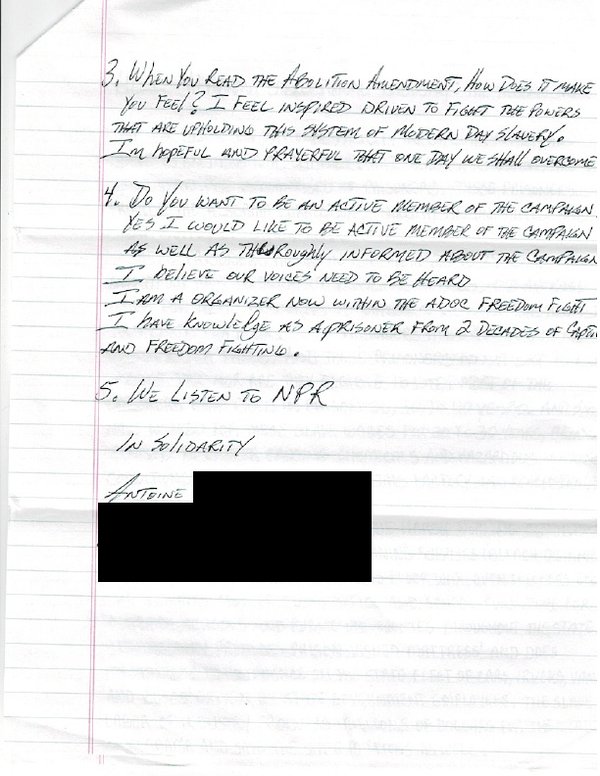 3. When You Read the Abolition Amendment, How Does it make
You Feel? I Feel inspired Driven to Fight the Powers
that are upholding this system of modern day slavery.
I'm hopeful and prayerful that one day we shall overcome
4. Do you want to be an active member of the campaign
Yes I would like to be active member of the campaign
as well as thoroughly informed about the campaign
I believe our voices need to be heard
I am a organizer now within the ADOC Freedom Fight
I have knowledge as a prisoner from 2 decades of
and freedom fighting.
5. We Listen to NPR
In Solidarity
Antoine